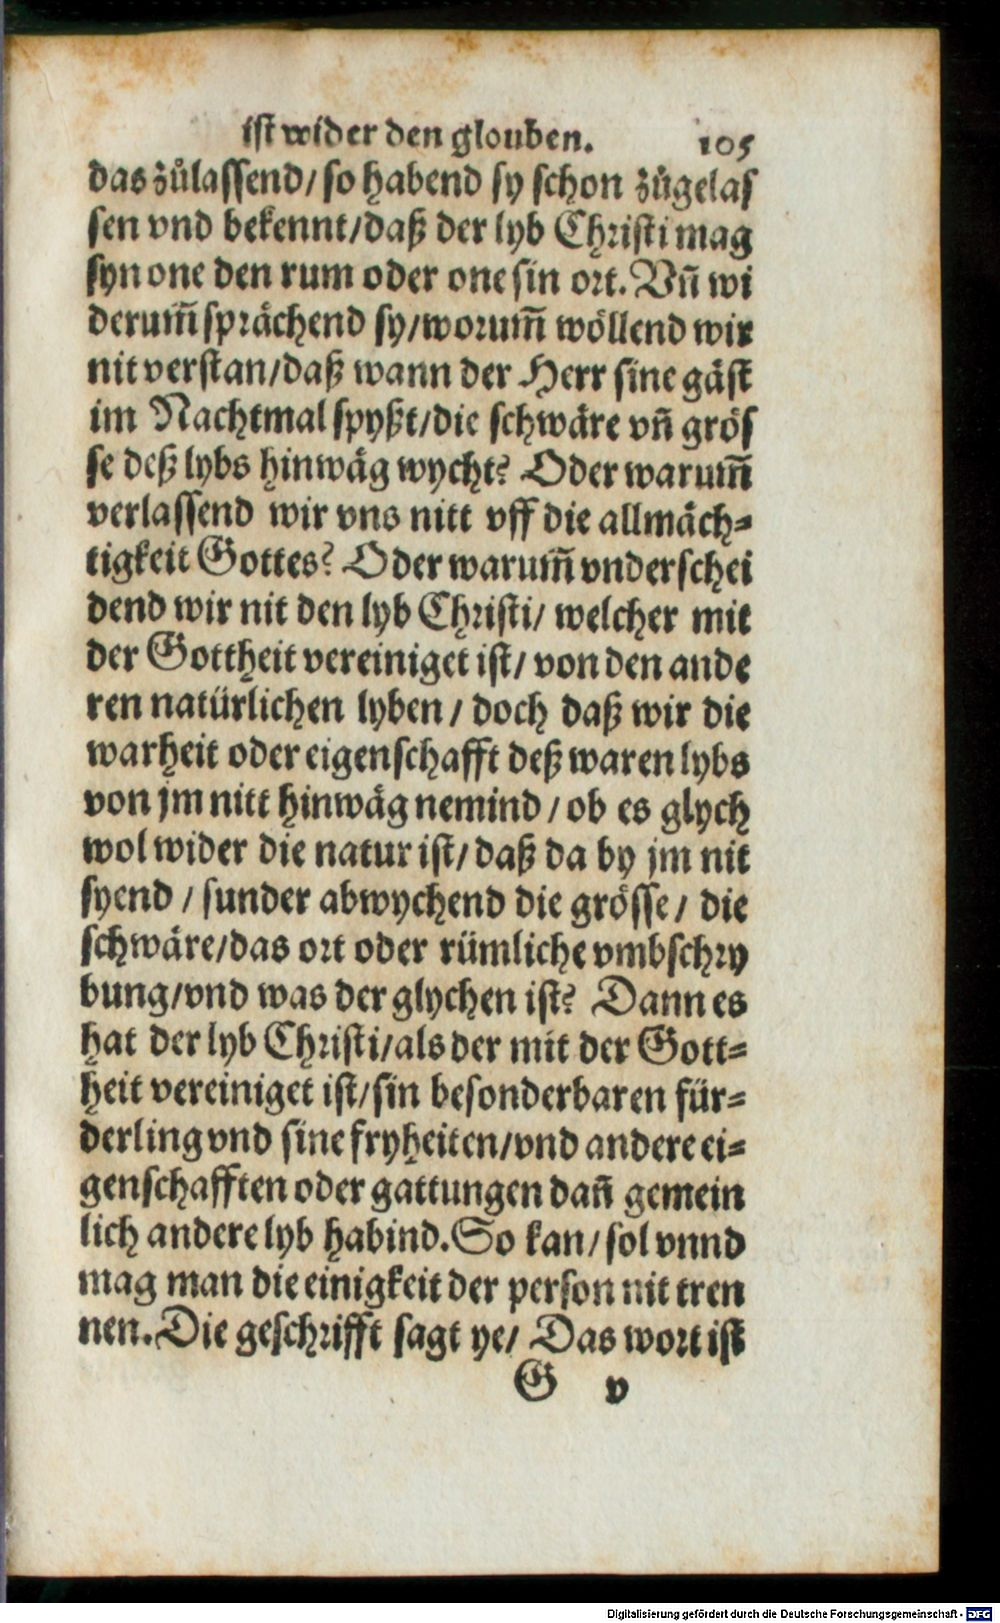 ist wider den glouben. 105
das zůlassend/ so habend sy schon zůgelas
sen vnd bekennt/ daß der lyb Christi mag
syn one den rum oder one sin ort. Vñ wi
derum̃ sprächend sy/ worum̃ wöllend wir
nit verstan/ daß wann der Herr sine gäst
im Nachtmal spyßt/ die schwäre vñ grös
se deß lybs hinwäg wycht? Oder warum̃
verlassend wir vns nitt vff die allmäch-
tigkeit Gottes? Oder warum̃ vnderschei
dend wir nit den lyb Christi/ welcher mit
der Gottheit vereiniget ist/ von den ande
ren natürlichen lyben/ doch daß wir die
warheit oder eigenschafft deß waren lybs
von jm nitt hinwäg nemind/ ob es glych
wol wider die natur ist/ daß da by jm nit
syend/ sunder abwychend die grösse/ die
schwäre/ das ort oder rümliche vmbschry
bung/ vnd was der glychen ist? Dann es
hat der lyb Christi/ als der mit der Gott-
heit vereiniget ist/ sin besonderbaren für-
derling vnd sine fryheiten/ vnd andere ei-
genschafften oder gattungen dañ gemein
lich andere lyb habind. So kan/ sol vnnd
mag man die einigkeit der person nit tren
nen. Die geschrifft sagt ye/ Das wort ist
G v
Digitalisierung gefördert durch die Deutsche Forschungsgemeinschaft - DFG